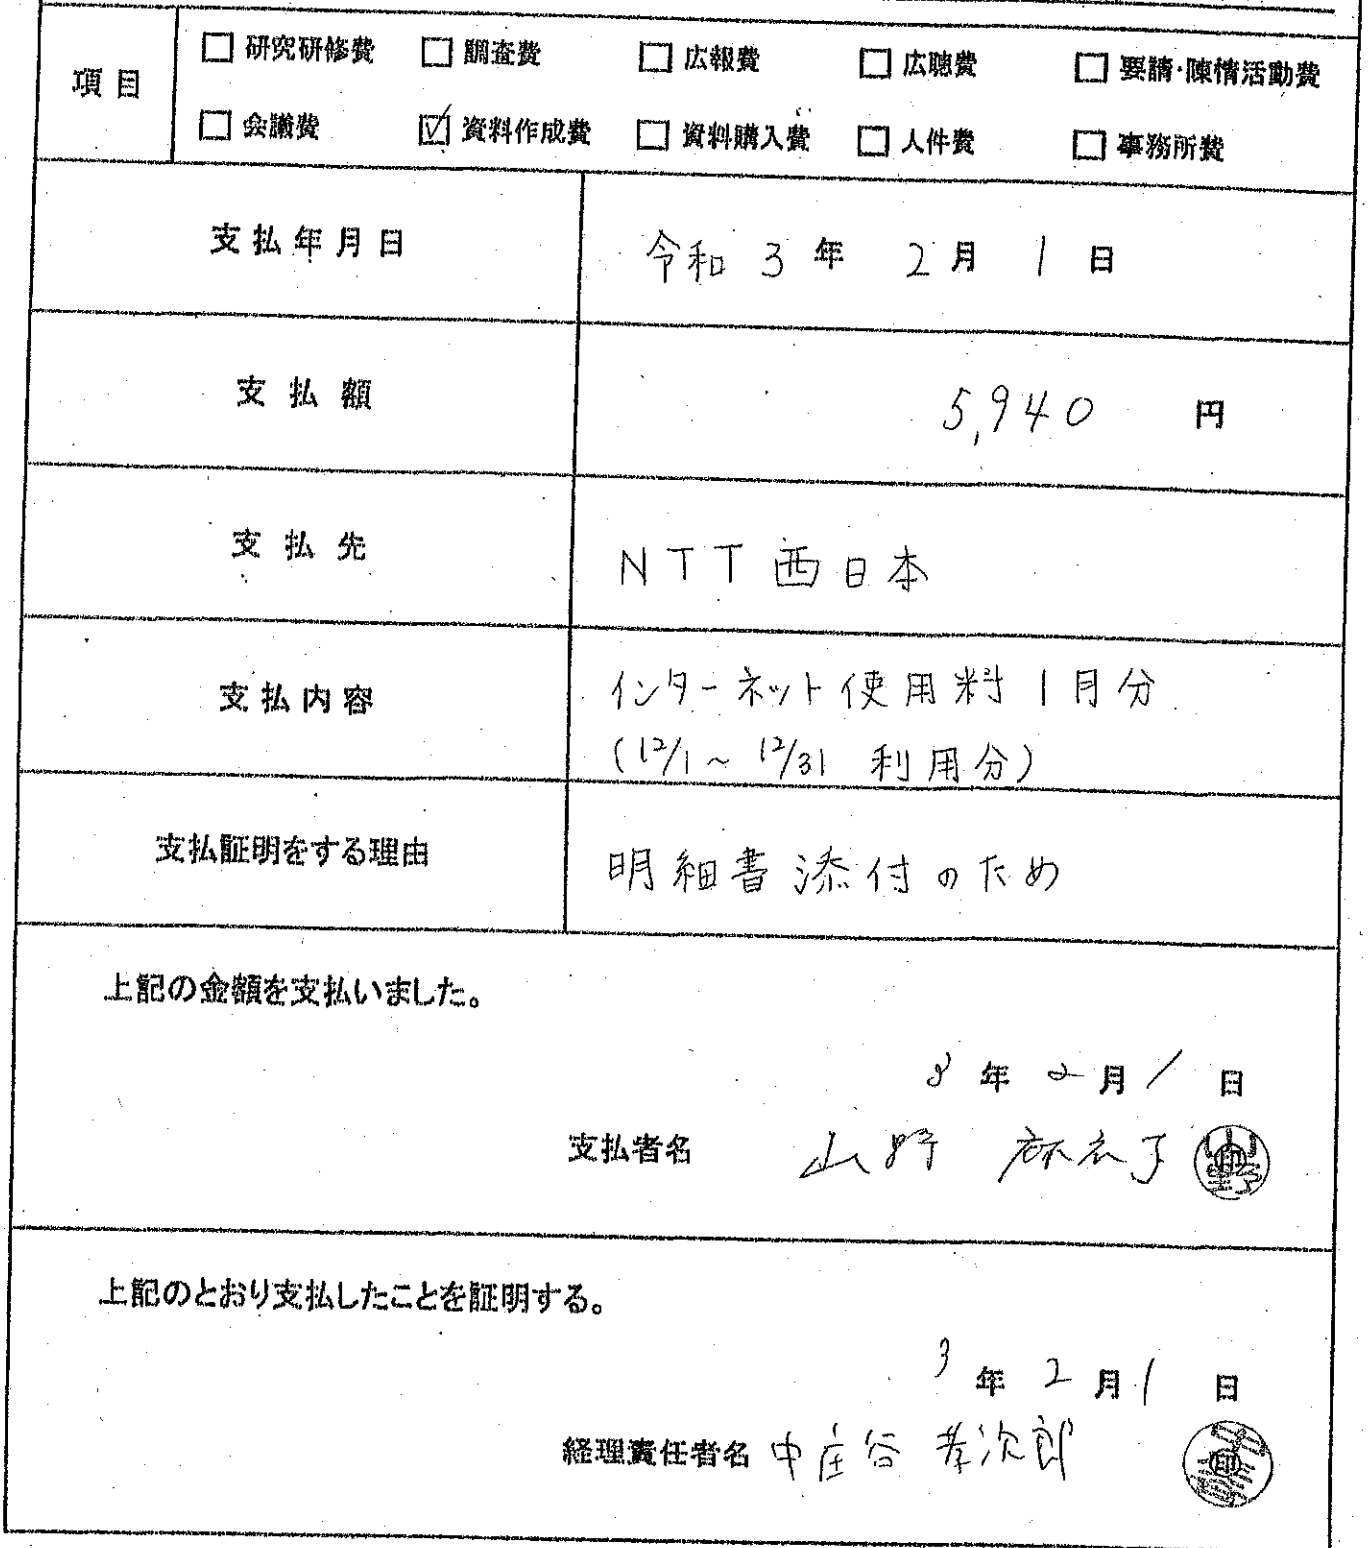 項目 □ 研究研修費 □ 調査費 □ 広報費 □ 広聴費 □ 要請・陳情活動費
□ 会議費 ☑ 資料作成費 □ 資料購入費 □ 人件費 □ 事務所費
支払年月日 令和 3 年 2 月 1 日
支払額 5,940 円
支払先 NTT西日本
支払内容 インターネット使用料1月分
(12/1~12/31 利用分)
支払証明をする理由 明細書添付のため
上記の金額を支払いました。
3 年 2 月 1 日
支払者名 山野 麻衣子
上記のとおり支払したことを証明する。
3 年 2 月 1 日
経理責任者名 中庄谷 孝次郎